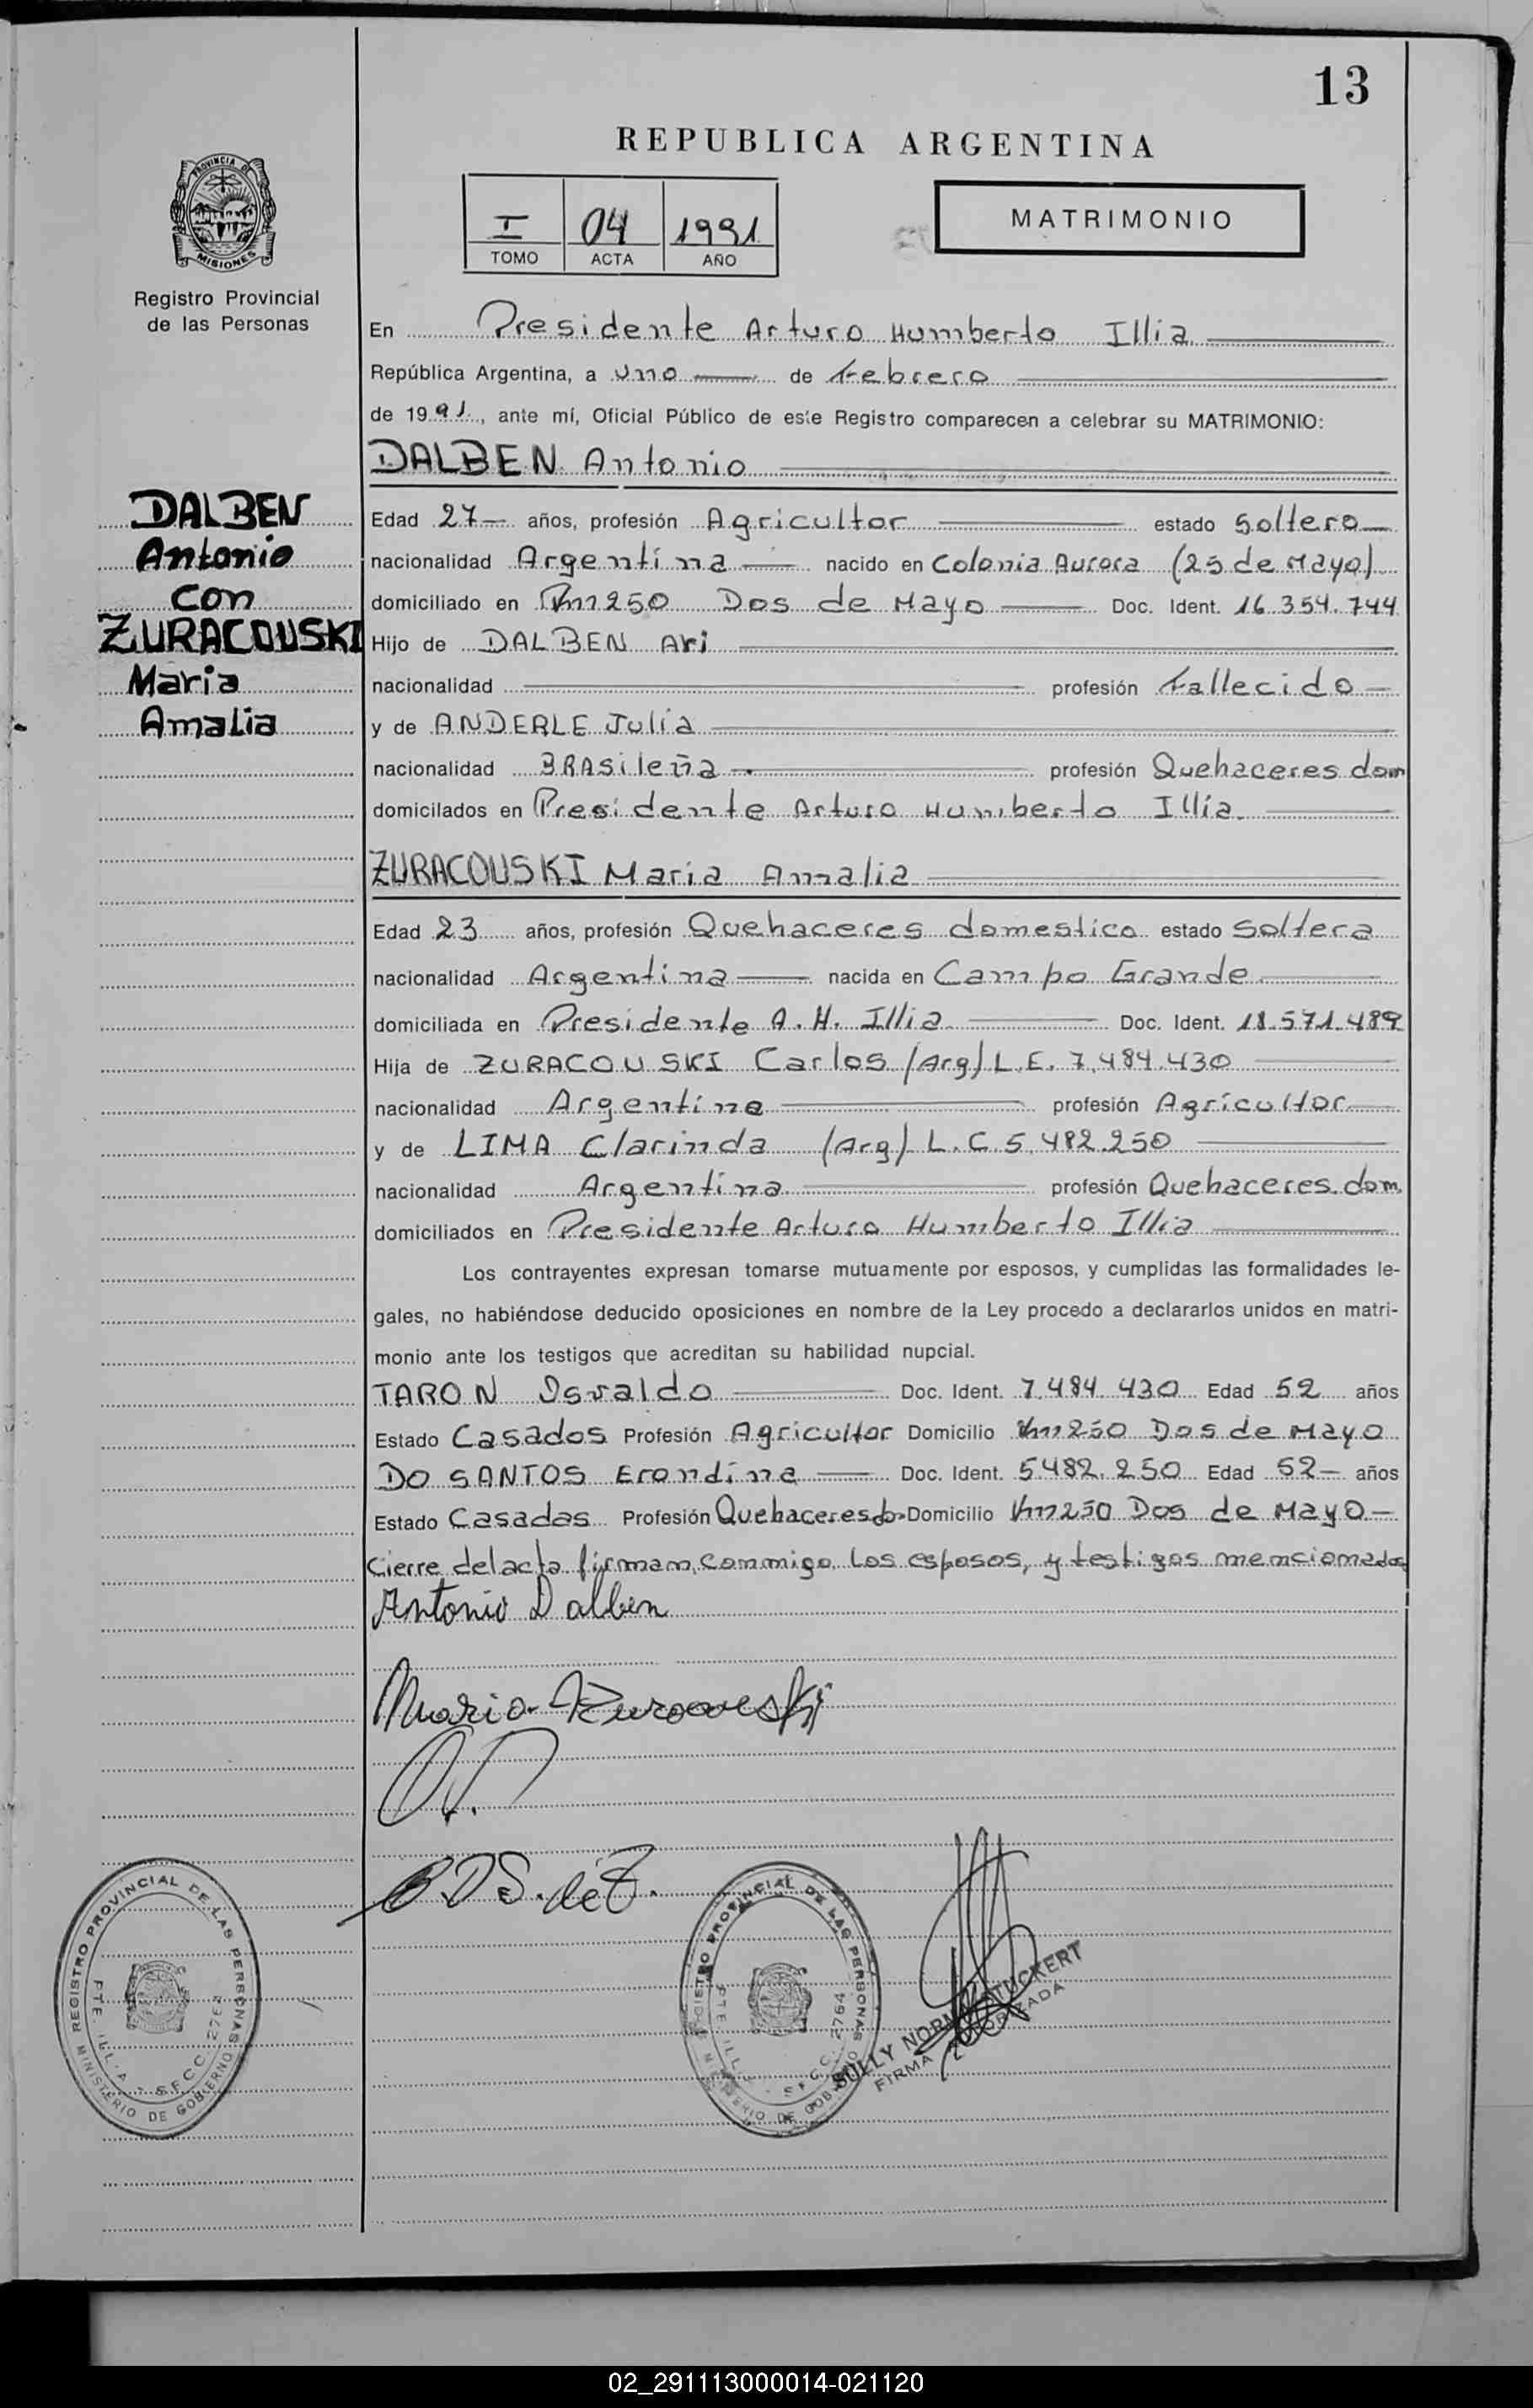 13
REPUBLICA ARGENTINA
PROVINCIA DE
MISIONES
Registro Provincial
de las Personas
I 04 1991
TOMO ACTA AÑO
MATRIMONIO
En Presidente Arturo Humberto Illia
República Argentina, a uno de Febrero
de 1991, ante mí, Oficial Público de este Registro comparecen a celebrar su MATRIMONIO:
DALBEN Antonio
DALBEN
Antonio
con
ZURACOUSKI
Maria
Amalia
Edad 27 años, profesión Agricultor estado Soltero
nacionalidad Argentina nacido en Colonia Aurora (25 de Mayo)
domiciliado en Km 250 Dos de Mayo Doc. Ident. 16.354.744
Hijo de DALBEN Ari
nacionalidad profesión Fallecido
y de ANDERLE Julia
nacionalidad BRASileña profesión Quehaceres dom
domicilados en Presidente Arturo Humberto Illia.
ZURACOUSKI Maria Amalia
Edad 23 años, profesión Quehaceres domestico estado Soltera
nacionalidad Argentina nacida en Campo Grande
domiciliada en Presidente A. H. Illia Doc. Ident. 18.571.489
Hija de ZURACOUSKI Carlos (Arg) L.E. 7.484.430
nacionalidad Argentina profesión Agricultor
y de LIMA Clarinda (Arg) L.C. 5.482.250
nacionalidad Argentina profesión Quehaceres dom.
domiciliados en Presidente Arturo Humberto Illia
Los contrayentes expresan tomarse mutuamente por esposos, y cumplidas las formalidades le-
gales, no habiéndose deducido oposiciones en nombre de la Ley procedo a declararlos unidos en matri-
monio ante los testigos que acreditan su habilidad nupcial.
TARON Osvaldo Doc. Ident. 7.484 430 Edad 52 años
Estado Casados Profesión Agricultor Domicilio Km 250 Dos de Mayo
DO SANTOS Erondina Doc. Ident. 5.482.250 Edad 52 años
Estado Casadas Profesión Quehaceres do Domicilio Km 250 Dos de Mayo
Cierre del acta firman, conmigo, los esposos, y testigos mencionados
Antonio Dalben
Maria Zuracouski
O.T.
E.D.S. de T.
REGISTRO PROVINCIAL DE LAS PERSONAS
PTE. ILLIA - SECC. 2764
MINISTERIO DE GOBIERNO
REGISTRO PROVINCIAL DE LAS PERSONAS
PTE. ILLIA - SECC. 2764
MINISTERIO DE GOBIERNO
FIRMA AUTORIZADA
02_291113000014-021120